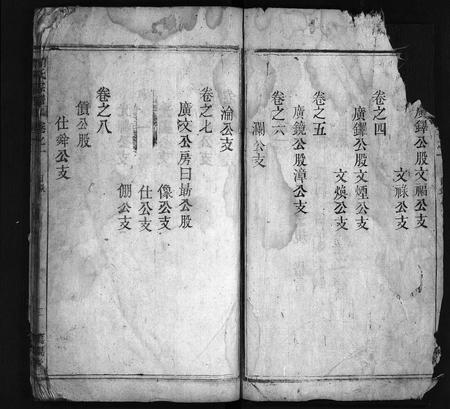 廣鐸公股文福公支
文祿公支
卷之四
廣鐸公股文煙公支
文煥公支
卷之五
廣鏡公股漳公支
卷之六
瀾公支
淪公支
卷之七
廣文公房曰勗公股
像公支
仕公支
倜公支
卷之八
價公股
仕舜公支